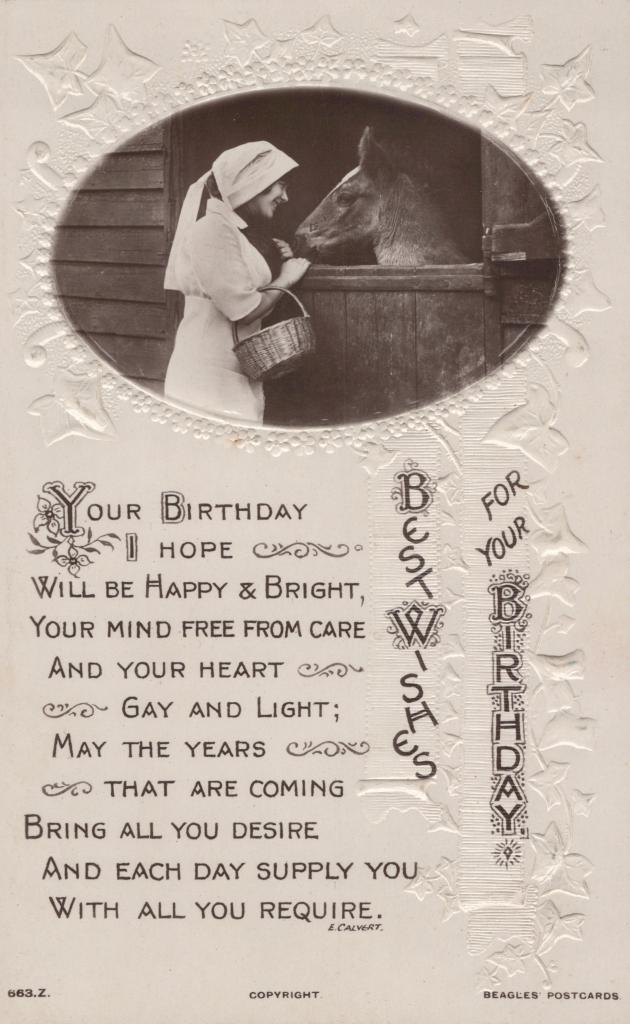 YOUR BIRTHDAY
I HOPE
WILL BE HAPPY & BRIGHT,
YOUR MIND FREE FROM CARE
AND YOUR HEART
GAY AND LIGHT;
MAY THE YEARS
THAT ARE COMING
BRING ALL YOU DESIRE
AND EACH DAY SUPPLY YOU
WITH ALL YOU REQUIRE.
E. CALVERT.
BEST WISHES
FOR
YOUR
BIRTHDAY.
663.Z.
COPYRIGHT.
BEAGLES' POSTCARDS